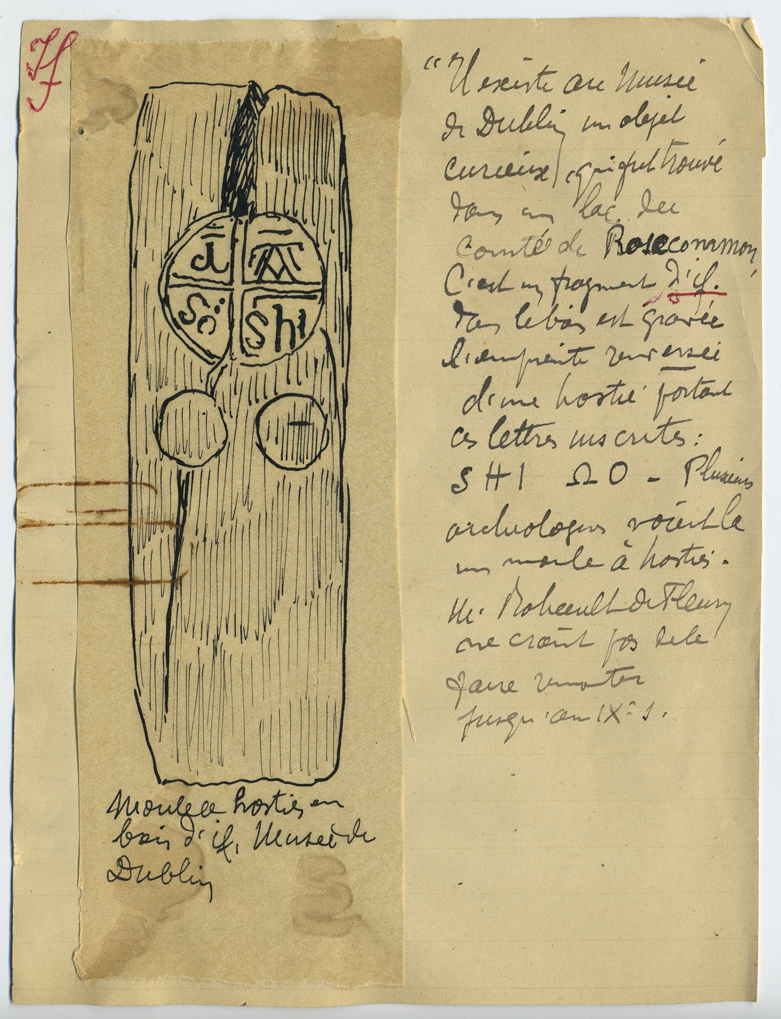 If
i A
So Shi
Moule à hosties en
bois d'if, Musée de
Dublin
"Il existe au Musée
de Dublin, un objet
curieux, qui fut trouvé
dans un lac du
comté de Roscommon,
C'est un fragment d'if.
Dans le bois est gravée
l'empreinte renversée
d'une hostie portant
ces lettres inscrites :
SHI ΩO - Plusieurs
archéologues voient là
un moule à hosties.
M. Rohault de Fleury
ne craint pas de le
faire remonter
jusqu'au IXe s.